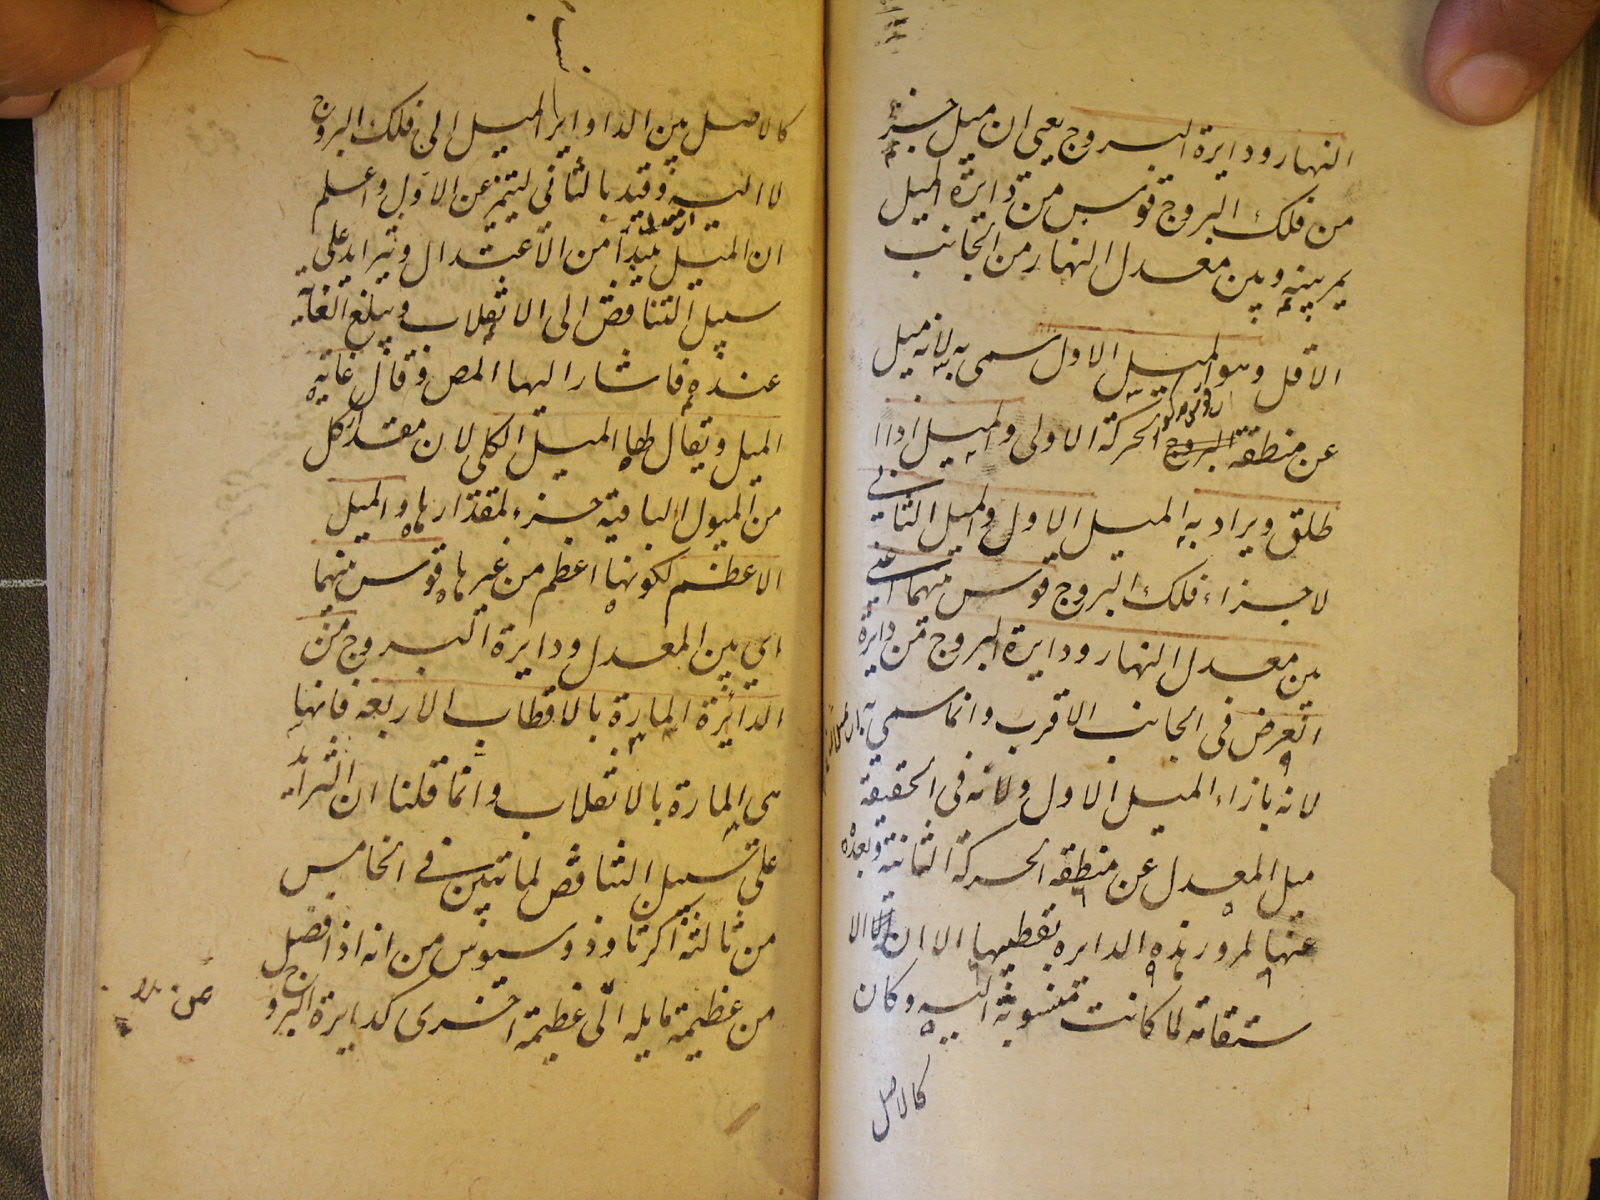 النهار ودايرة البروج يعني ان ميل جزء
من فلك البروج قوس من دايرة الميل
يمر بينه وبين معدل النهار من الجانب
الاقل وهو الميل الاول سمى به لانه ميل
عن منطقة الحركة الاولى والميل اذا ا
طلق ويراد به الميل الاول والميل الثاني
لاجزاء فلك البروج قوس منهما اعني
بين معدل النهار ودايرة البروج من دايرة
العرض في الجانب الاقرب وانما سمي به
لانه بازاء الميل الاول ولانه في الحقيقة
ميل المعدل عن منطقة الحركة الثانية وبعده
عنها لمرور هذه الدايره بقطبيها الا ان الا
ستقامة لما كانت منسوبة اليه وكان
كالاصل
كالاصل بين الداواير الميل الى فلك البروج
لا اليه وقيد بالثاني ليتميز عن الاول واعلم
ان الميل يبتدأ من الاعتدال ويتزايد على
سبيل التناقض الى الانقلاب ويبلغ الغاية
عنده فاشار اليها المص وقال غاية
الميل ويقال لها الميل الكلى لان مقدار كل
من الميول الباقية جزء لمقدارها والميل
الاعظم لكونها اعظم من غيرها قوس منهما
اي بين المعدل ودايرة البروج من
الدائرة المارة بالاقطاب الاربعه فانها
هي المارة بالانقلاب وانما قلنا ان التزايد
على سبيل التناقض لما تبين في الخامس
من ثالثة اكرثاوذوسيوس من انه اذا فصل
من عظيمة مايله الى عظيمة اخرى كدايرة البروج